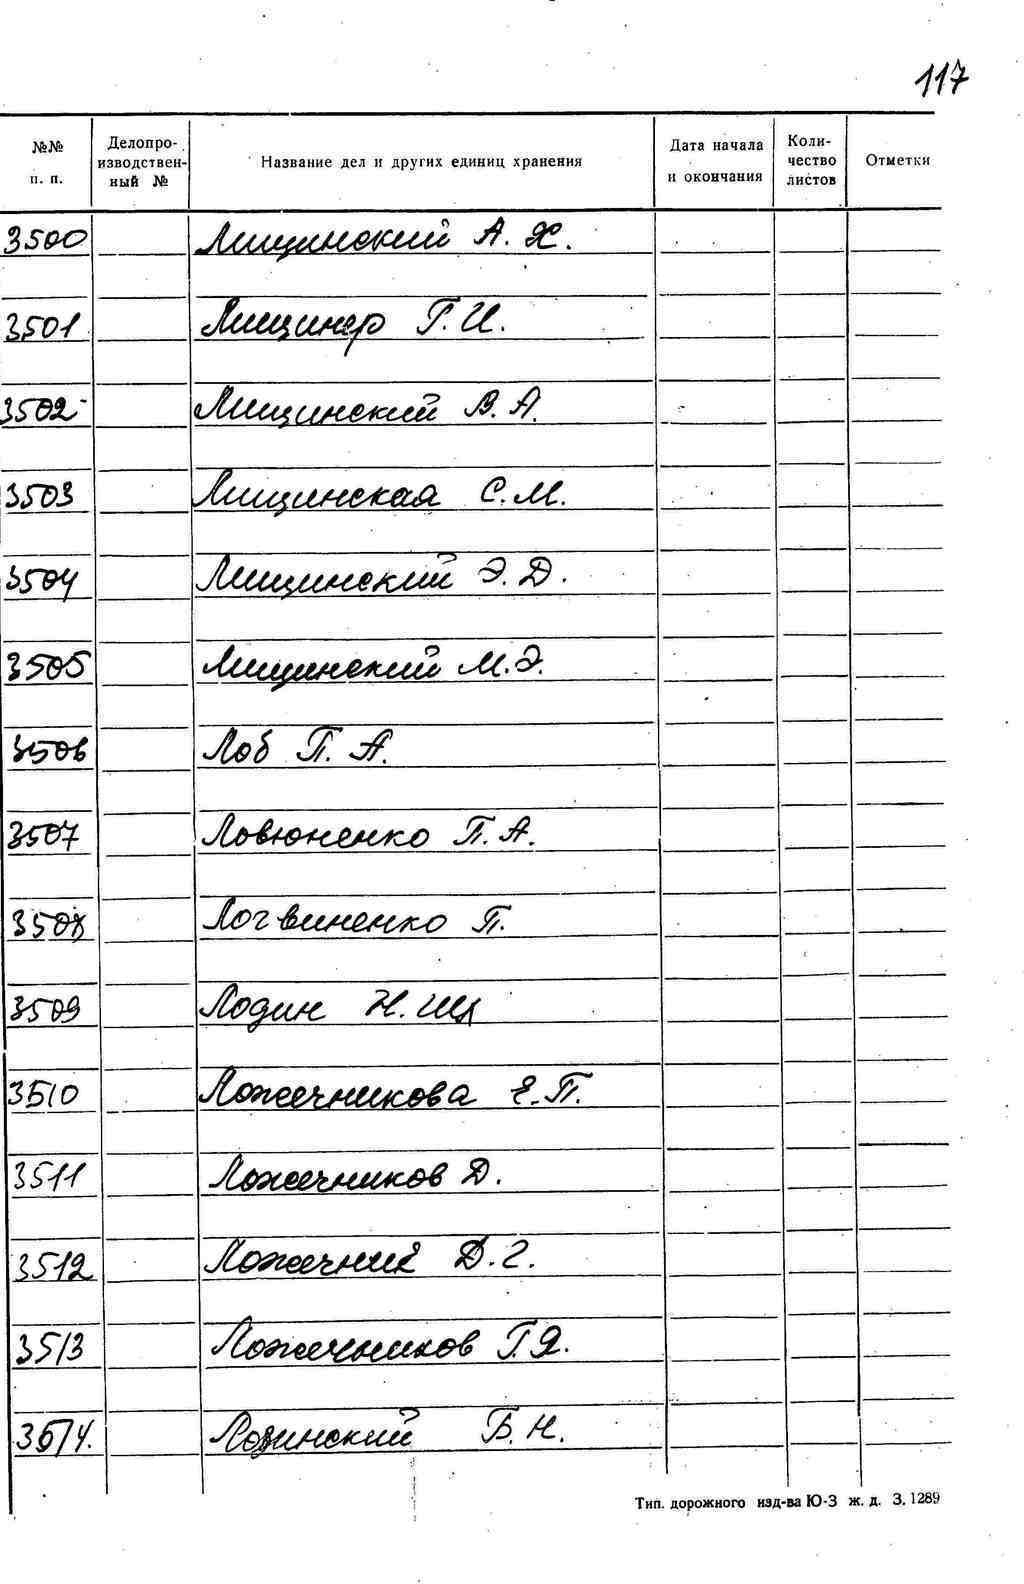 117
№№ п. п. Делопроизводственный № Название дел и других единиц хранения Дата начала и окончания Количество листов Отметки
3500 Лищинский А. Х.
3501 Лищинер Г. И.
3502 Лищинский В. А.
3503 Лищинская С. М.
3504 Лищинский Э. Д.
3505 Лищинский М. Э.
3506 Лоб П. А.
3507 Ловюненко П. А.
3508 Логвиненко П.
3509 Лодин Н.
3510 Ложечникова Е. П.
3511 Ложечников Д.
3512 Ложечний Д. Г.
3513 Ложечников Г. Я.
3514. Лозинский Б. Н.
Тип. дорожного изд-ва Ю-З ж. д. З. 1289